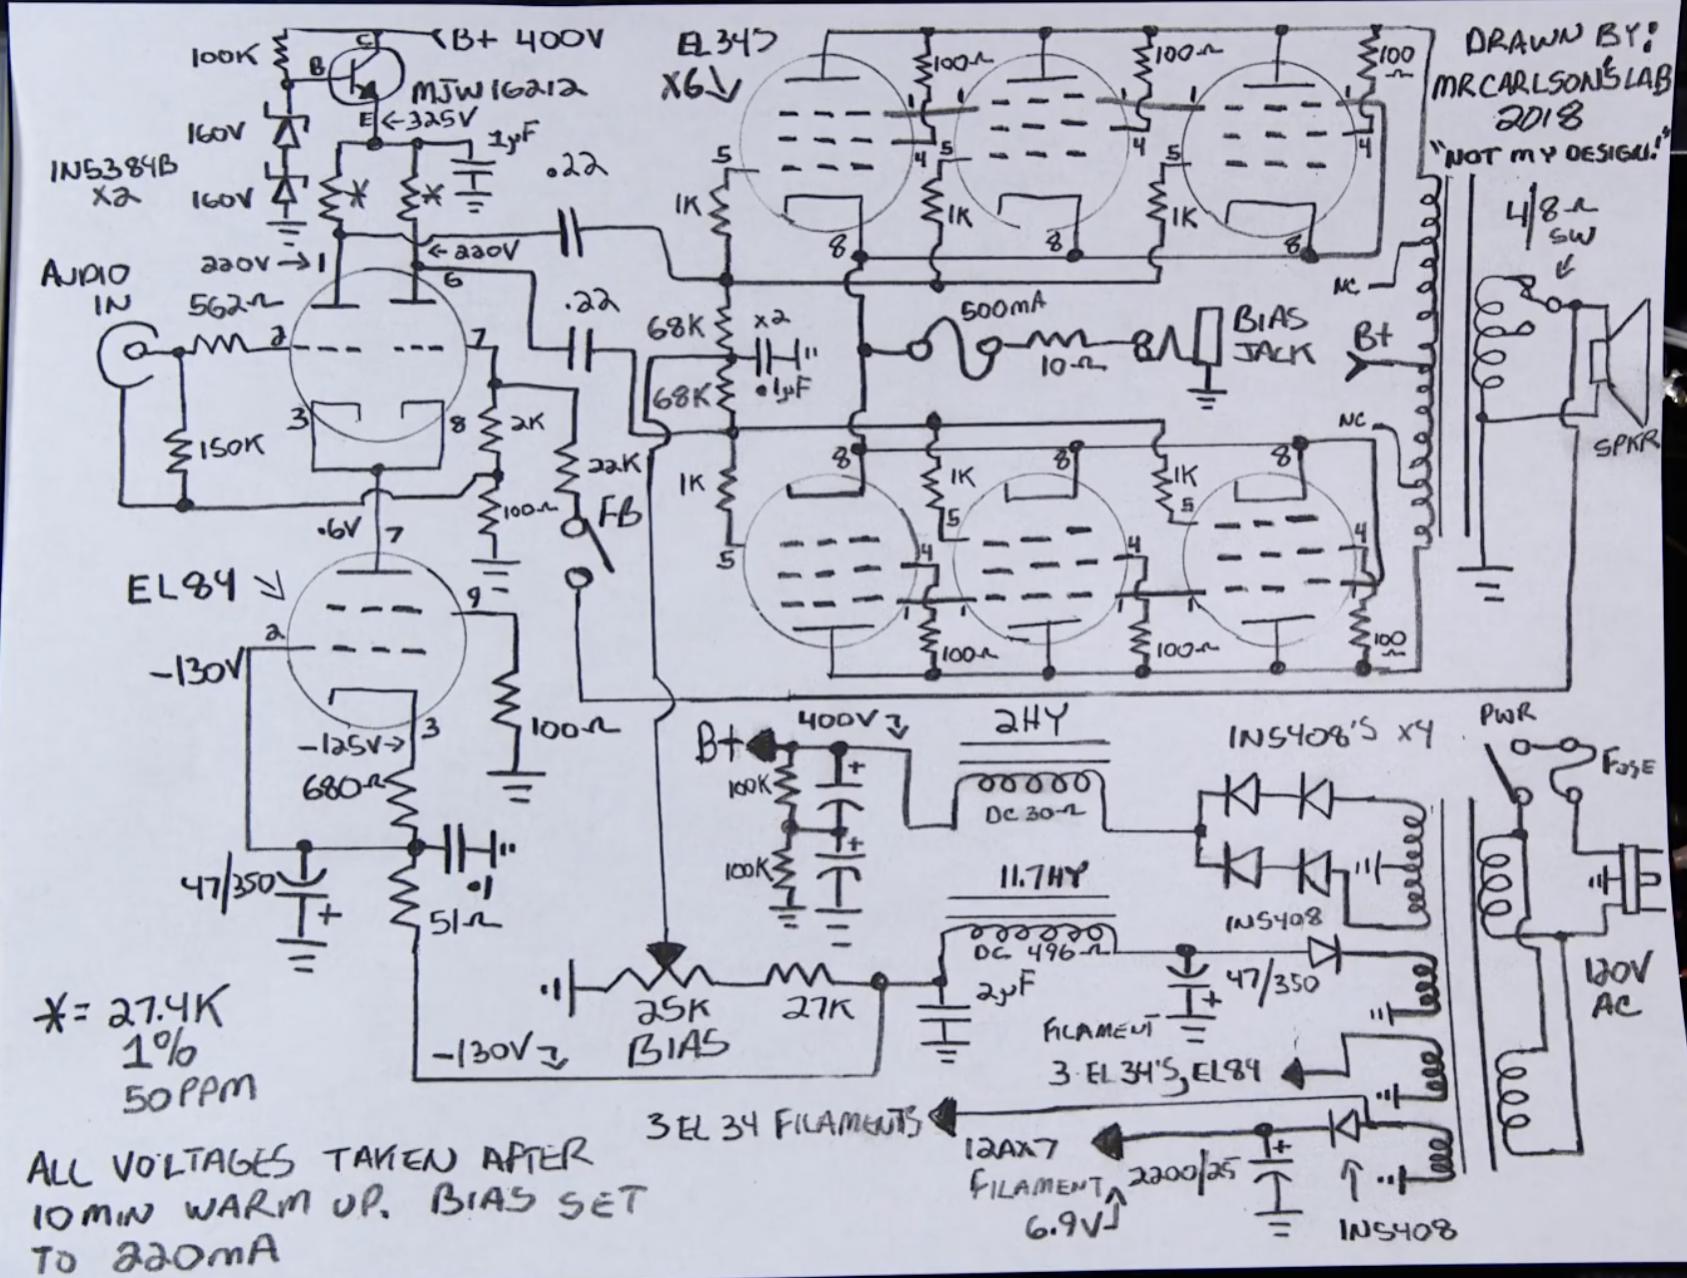 100K
B
C
B+ 400V
MJW16212
E ←325V
160V
160V
1N5384B
X2
1µF
*
*
.22
220V→
1
←220V
6
AUDIO
IN
562Ω
2
7
150K
3
8
2K
22K
100Ω
FB
.22
.6V
7
EL84
9
2
-130V
-125V→
3
680Ω
100Ω
47/350
+
.1
51Ω
EL34'S
X6
100Ω
100Ω
100
Ω
1
1
1
1
4
4
4
5
5
5
1K
1K
1K
8
8
8
DRAWN BY:
MRCARLSON'S LAB
2018
"NOT MY DESIGN!"
4/8Ω
SW
NC
B+
NC
SPKR
68K
X2
68K
.1µF
500MA
10Ω
BIAS
JACK
8
8
8
1K
1K
1K
5
5
5
4
4
4
1
1
1
1
100Ω
100Ω
100
Ω
B+
400V
100K
+
100K
+
2HY
DC 30Ω
1N5408'S X4
PWR
FUSE
1N5408
11.7HY
DC 496Ω
47/350
+
120V
AC
25K
BIAS
27K
2µF
-130V
FILAMENT
3 EL34'S, EL84
3 EL34 FILAMENTS
12AX7
FILAMENT
6.9V
2200/25
+
1N5408
*= 27.4K
1%
50PPM
ALL VOLTAGES TAKEN AFTER
10MIN WARM UP. BIAS SET
TO 220MA